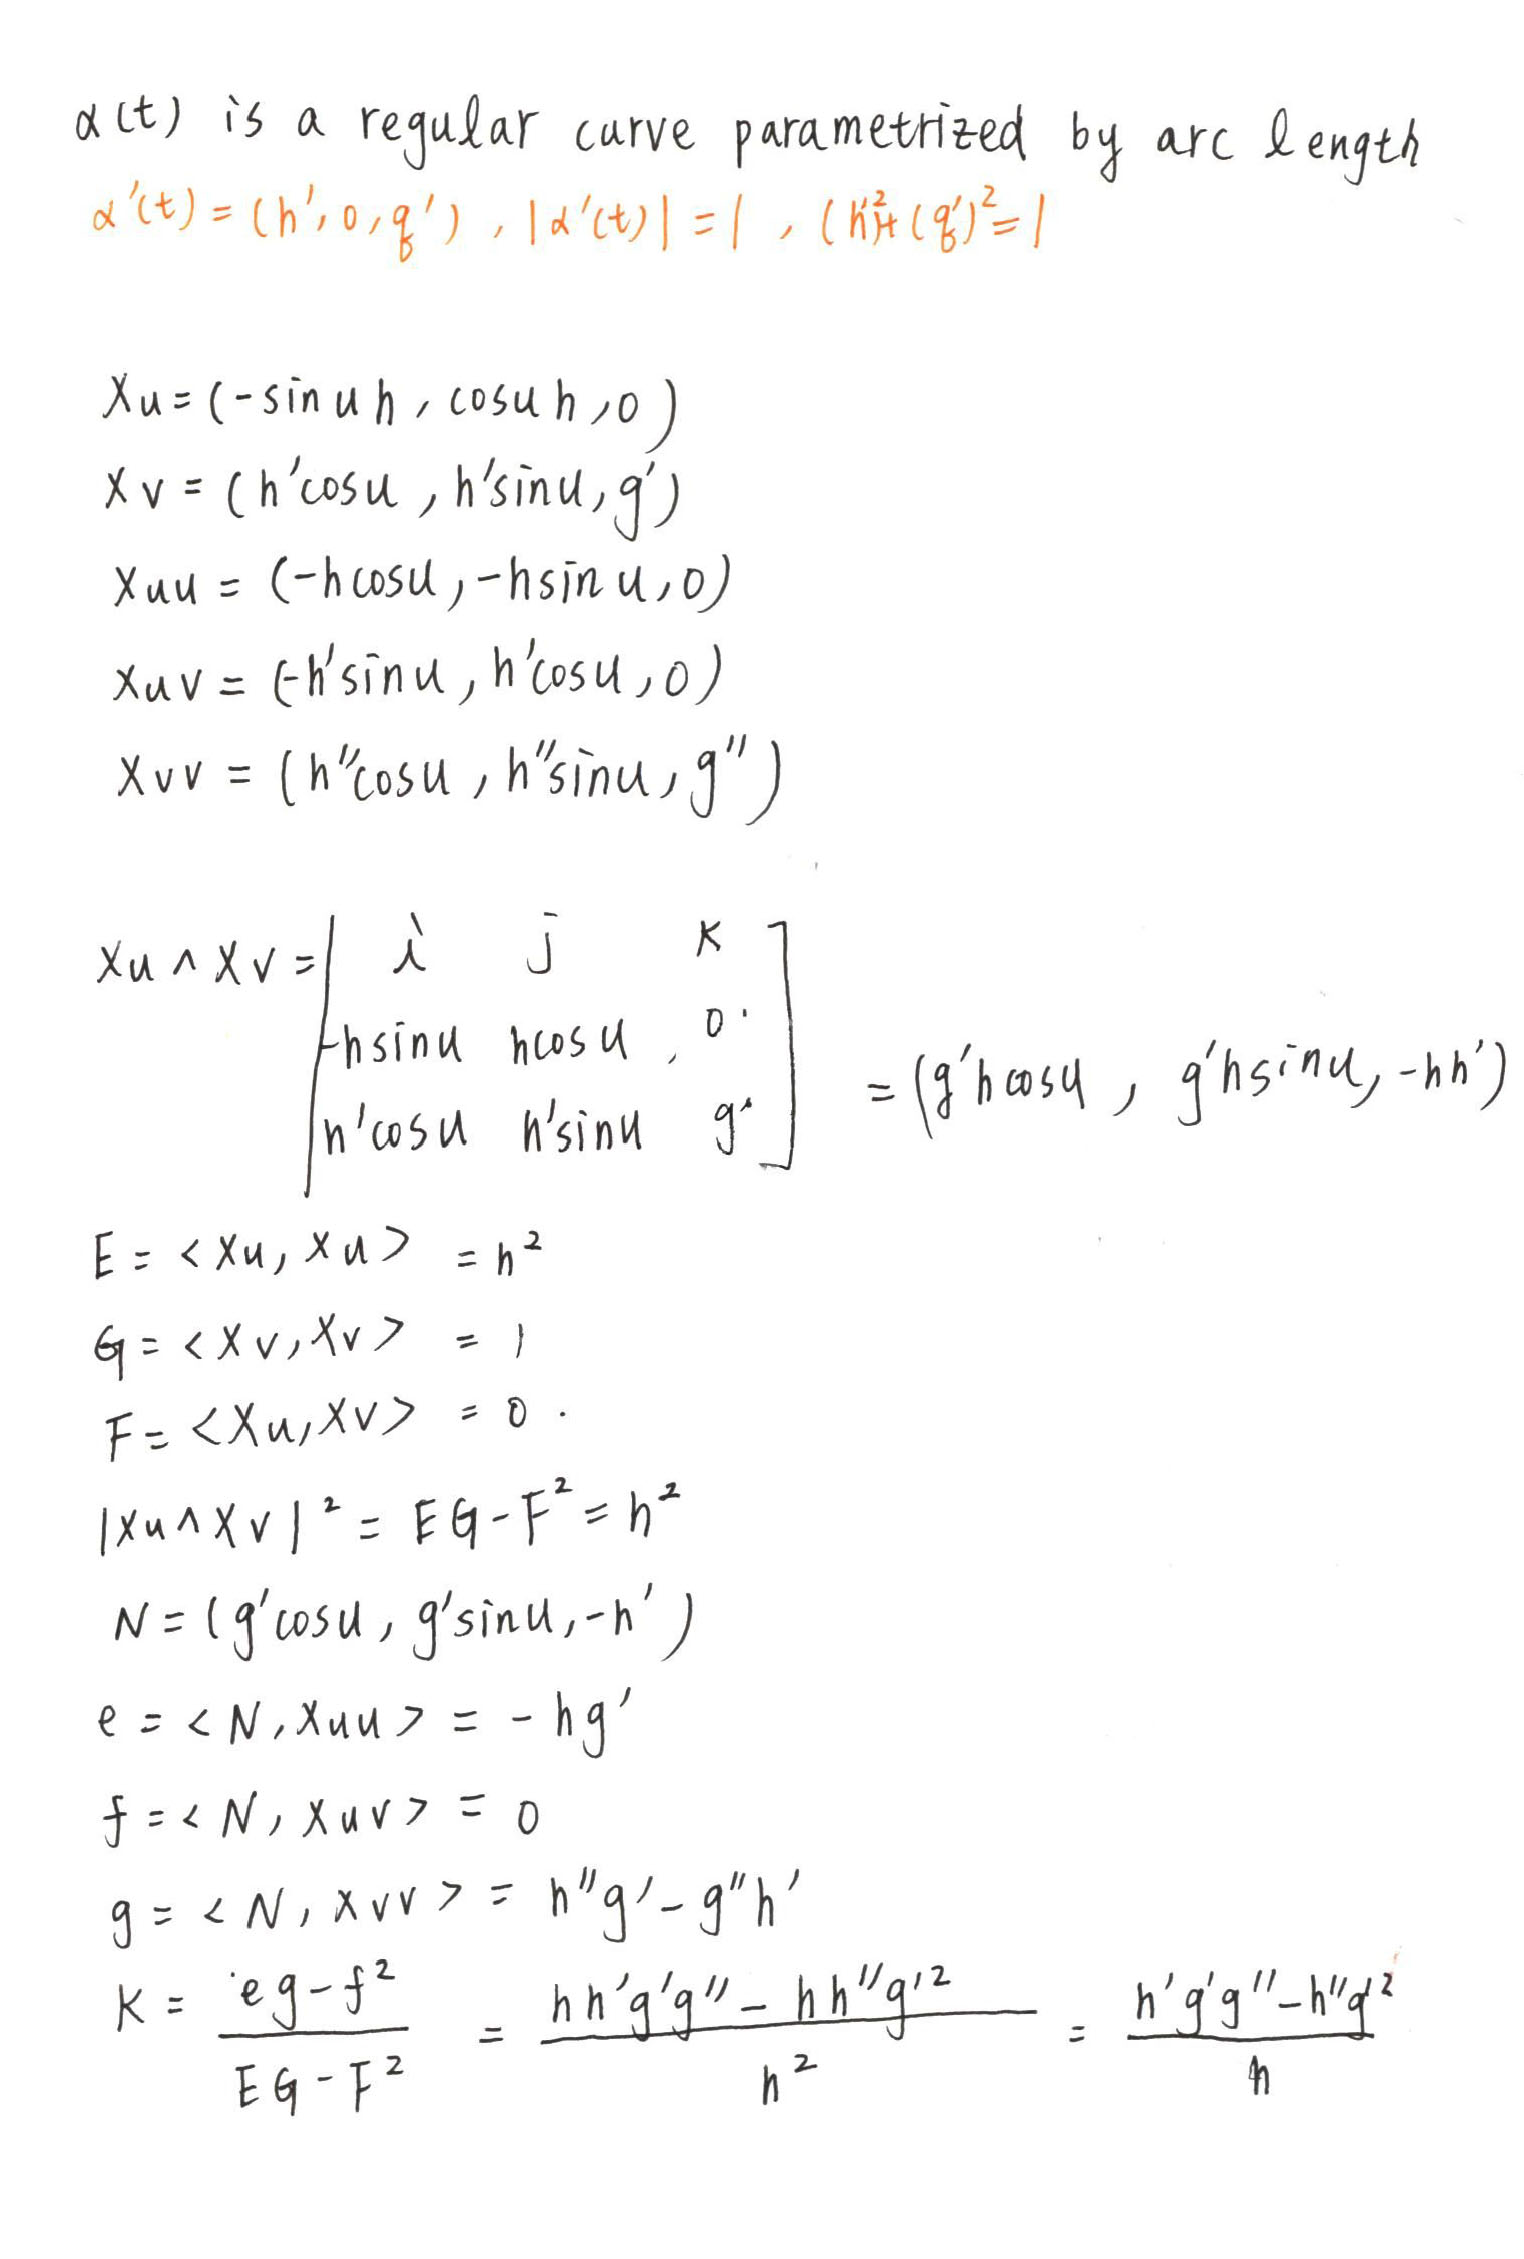 α(t) is a regular curve parametrized by arc length
α'(t) = (h', 0, g'), |α'(t)| = 1, (h')²+(g')²=1
Xu = (-sinuh, cosuh, 0)
Xv = (h'cosu, h'sinu, g')
Xuu = (-hcosu, -hsinu, 0)
Xuv = (-h'sinu, h'cosu, 0)
Xvv = (h''cosu, h''sinu, g'')
Xu ∧ Xv = | i j k
-hsinu hcosu, 0
h'cosu h'sinu g' ] = (g'hcosu, g'hsinu, -hh')
E = <Xu, Xu> = h²
G = <Xv, Xv> = 1
F = <Xu, Xv> = 0.
|Xu∧Xv|² = EG-F² = h²
N = (g'cosu, g'sinu, -h')
e = <N, Xuu> = -hg'
f = <N, Xuv> = 0
g = <N, Xvv> = h''g' - g''h'
K = eg-f² / EG-F² = hh'g'g'' - hh''g'² / h² = h'g'g'' - h''g'² / h